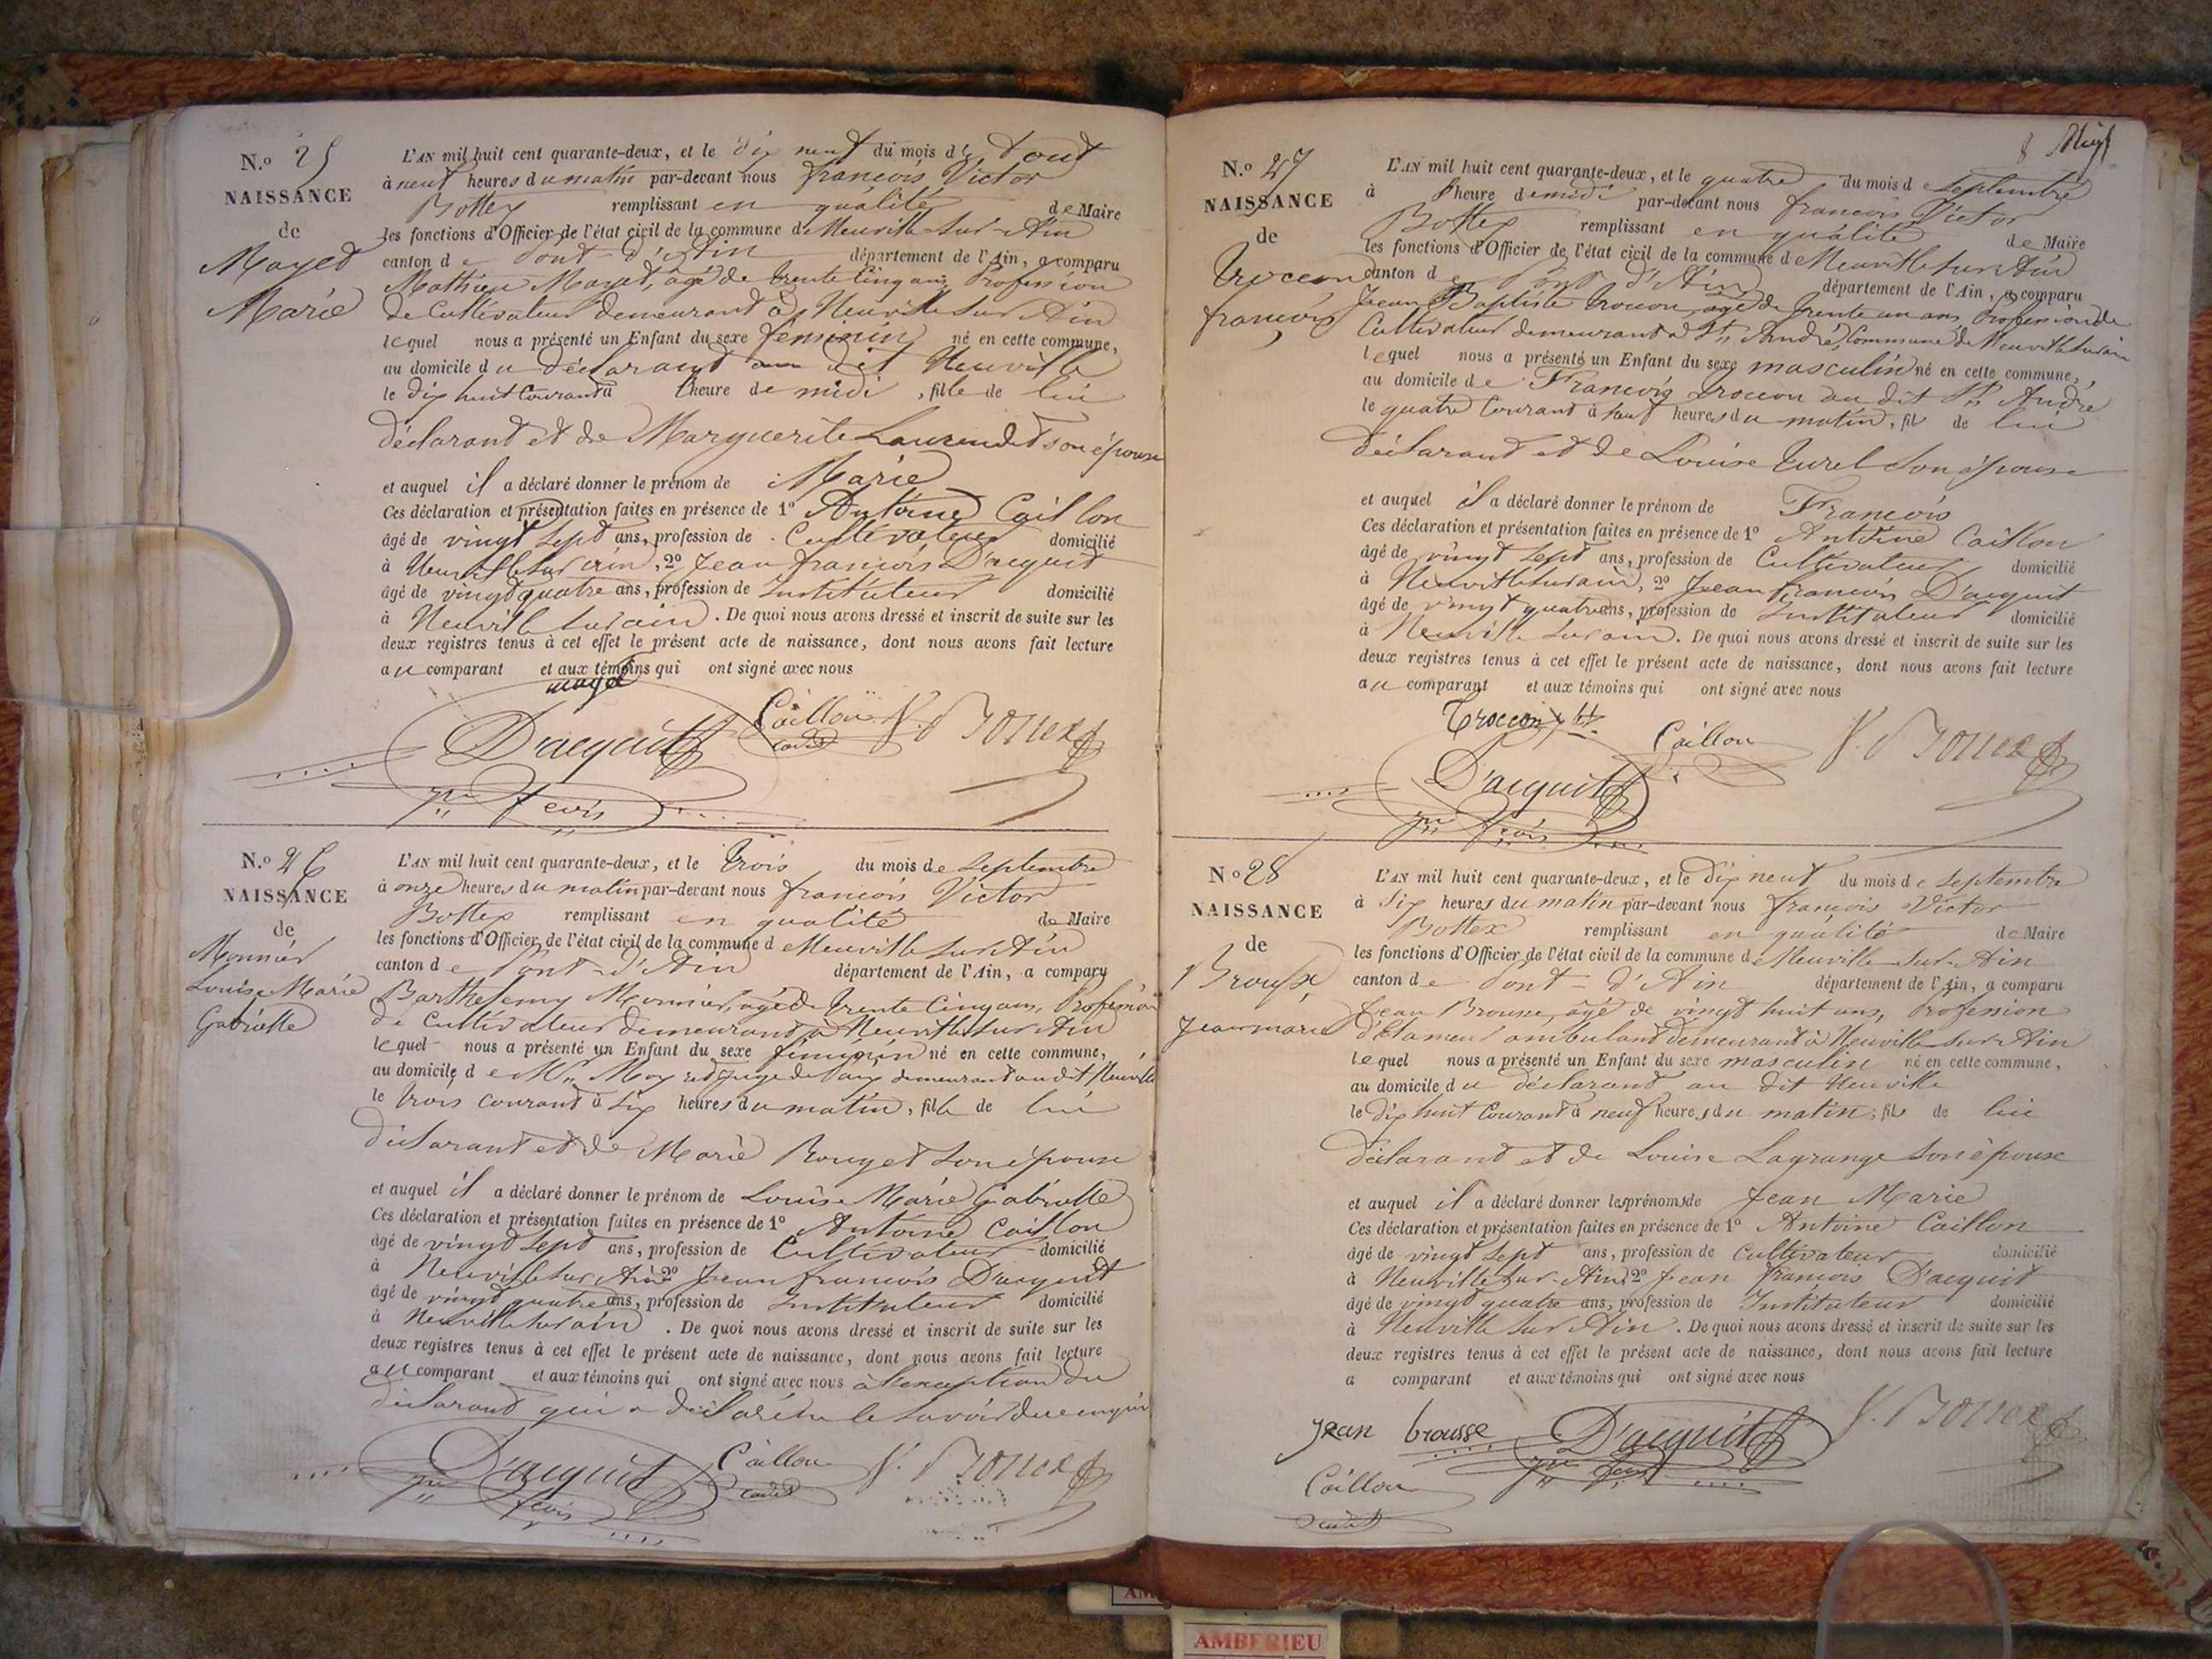 N.o 25
NAISSANCE
de
Mayet
Marie
L'AN mil huit cent quarante-deux, et le dix neuf du mois d'Aout
à neuf heures du matin par-devant nous françois Victor
Bottex remplissant en qualité de Maire
les fonctions d'Officier de l'état civil de la commune de Neuville Sur Ain
canton de Pont-d'Ain département de l'Ain, a comparu
Mathieu Mayet, agé de trente Cinq ans, Profession
de Cultivateur demeurant à Neuville Sur Ain
lequel nous a présenté un Enfant du sexe féminin né en cette commune,
au domicile du déclarant au dit Neuville
le dix huit Courant à l'heure de midi, fille de lui
déclarant et de Marguerite Laurendet son épouse
et auquel il a déclaré donner le prénom de Marie
Ces déclaration et présentation faites en présence de 1o Antoine Caillon
âgé de vingt Sept ans, profession de Cultivateur domicilié
à Neuville Sur ain, 2o Jean françois D'acquit
âgé de vingt quatre ans, profession de Instituteur domicilié
à Neuville Sur ain. De quoi nous avons dressé et inscrit de suite sur les
deux registres tenus à cet effet le présent acte de naissance, dont nous avons fait lecture
au comparant et aux témoins qui ont signé avec nous
mayet
D'acquit Caillon V. Bottex
cadet
jn fçois
N.o 26
NAISSANCE
de
Monnier
Louise Marie
Gabrielle
L'AN mil huit cent quarante-deux, et le trois du mois de Septembre
à onze heures du matin par-devant nous françois Victor
Bottex remplissant en qualité de Maire
les fonctions d'Officier de l'état civil de la commune de Neuville Sur Ain
canton de Pont-d'Ain département de l'Ain, a comparu
Barthelemy Monnier, agé de trente Cinq ans, Profession
de Cultivateur demeurant à Neuville Sur Ain
lequel nous a présenté un Enfant du sexe féminin né en cette commune,
au domicile de Mr juge de Paix demeurant au dit Neuville
le trois courant à Six heures du matin, fille de lui
déclarant et de Marie Rouget Son épouse
et auquel il a déclaré donner le prénom de Louise Marie Gabrielle
Ces déclaration et présentation faites en présence de 1o Antoine Caillon
âgé de vingt Sept ans, profession de Cultivateur domicilié
à Neuville Sur Ain 2o Jean françois D'acquit
âgé de vingt quatre ans, profession de Instituteur domicilié
à Neuville Sur ain. De quoi nous avons dressé et inscrit de suite sur les
deux registres tenus à cet effet le présent acte de naissance, dont nous avons fait lecture
au comparant et aux témoins qui ont signé avec nous à l'exception du
déclarant qui a déclaré ne le Savoir de ce enquis
D'acquit Caillon V. Bottex
cadet
jn fçois
N.o 27
NAISSANCE
de
Troccon
françois
L'AN mil huit cent quarante-deux, et le quatre du mois de Septembre
à l'heure de midi par-devant nous françois Victor
Bottex remplissant en qualité de Maire
les fonctions d'Officier de l'état civil de la commune de Neuville Sur Ain
canton de Pont d'Ain département de l'Ain, a comparu
Jean Baptiste Trocon, agé de trente un ans, Profession de
Cultivateur demeurant à St André, Commune de Neuville Sur ain
lequel nous a présenté un Enfant du sexe masculin né en cette commune,
au domicile de François Trocon au dit St André
le quatre Courant à Sept heures du matin, fils de lui
déclarant et de Louise Turel Son épouse
et auquel il a déclaré donner le prénom de François
Ces déclaration et présentation faites en présence de 1o Antoine Caillon
âgé de vingt Sept ans, profession de Cultivateur domicilié
à Neuville Sur ain, 2o Jean françois D'acquit
âgé de vingt quatre ans, profession de Instituteur domicilié
à Neuville Sur ain. De quoi nous avons dressé et inscrit de suite sur les
deux registres tenus à cet effet le présent acte de naissance, dont nous avons fait lecture
au comparant et aux témoins qui ont signé avec nous
Troccon
D'acquit Caillon V. Bottex
jn fçois
No 28
NAISSANCE
de
Brousse
Jean marie
L'AN mil huit cent quarante-deux, et le dix neuf du mois de Septembre
à Six heures du matin par-devant nous françois Victor
Bottex remplissant en qualité de Maire
les fonctions d'Officier de l'état civil de la commune de Neuville Sur Ain
canton de Pont-d'Ain département de l'Ain, a comparu
Jean Brousse, agé de vingt huit ans, Profession
d'étameur ambulant demeurant à Neuville Sur Ain
lequel nous a présenté un Enfant du sexe masculin né en cette commune,
au domicile du déclarant au dit Neuville
le dix huit Courant à neuf heures du matin, fils de lui
déclarant et de Louise Lagrange Son épouse
et auquel il a déclaré donner les prénoms de Jean Marie
Ces déclaration et présentation faites en présence de 1o Antoine Caillon
âgé de vingt Sept ans, profession de Cultivateur domicilié
à Neuville Sur Ain 2o Jean françois D'acquit
âgé de vingt quatre ans, profession de Instituteur domicilié
à Neuville Sur Ain. De quoi nous avons dressé et inscrit de suite sur les
deux registres tenus à cet effet le présent acte de naissance, dont nous avons fait lecture
a comparant et aux témoins qui ont signé avec nous
jean brousse D'acquit V. Bottex
jn fçois
Caillon
cadet
AMBERIEU